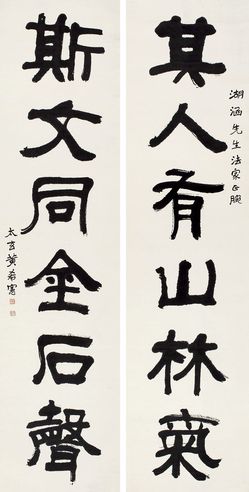 湖涵先生法家正腕
其人有山林氣
斯文同金石聲
太玄黃葆寓